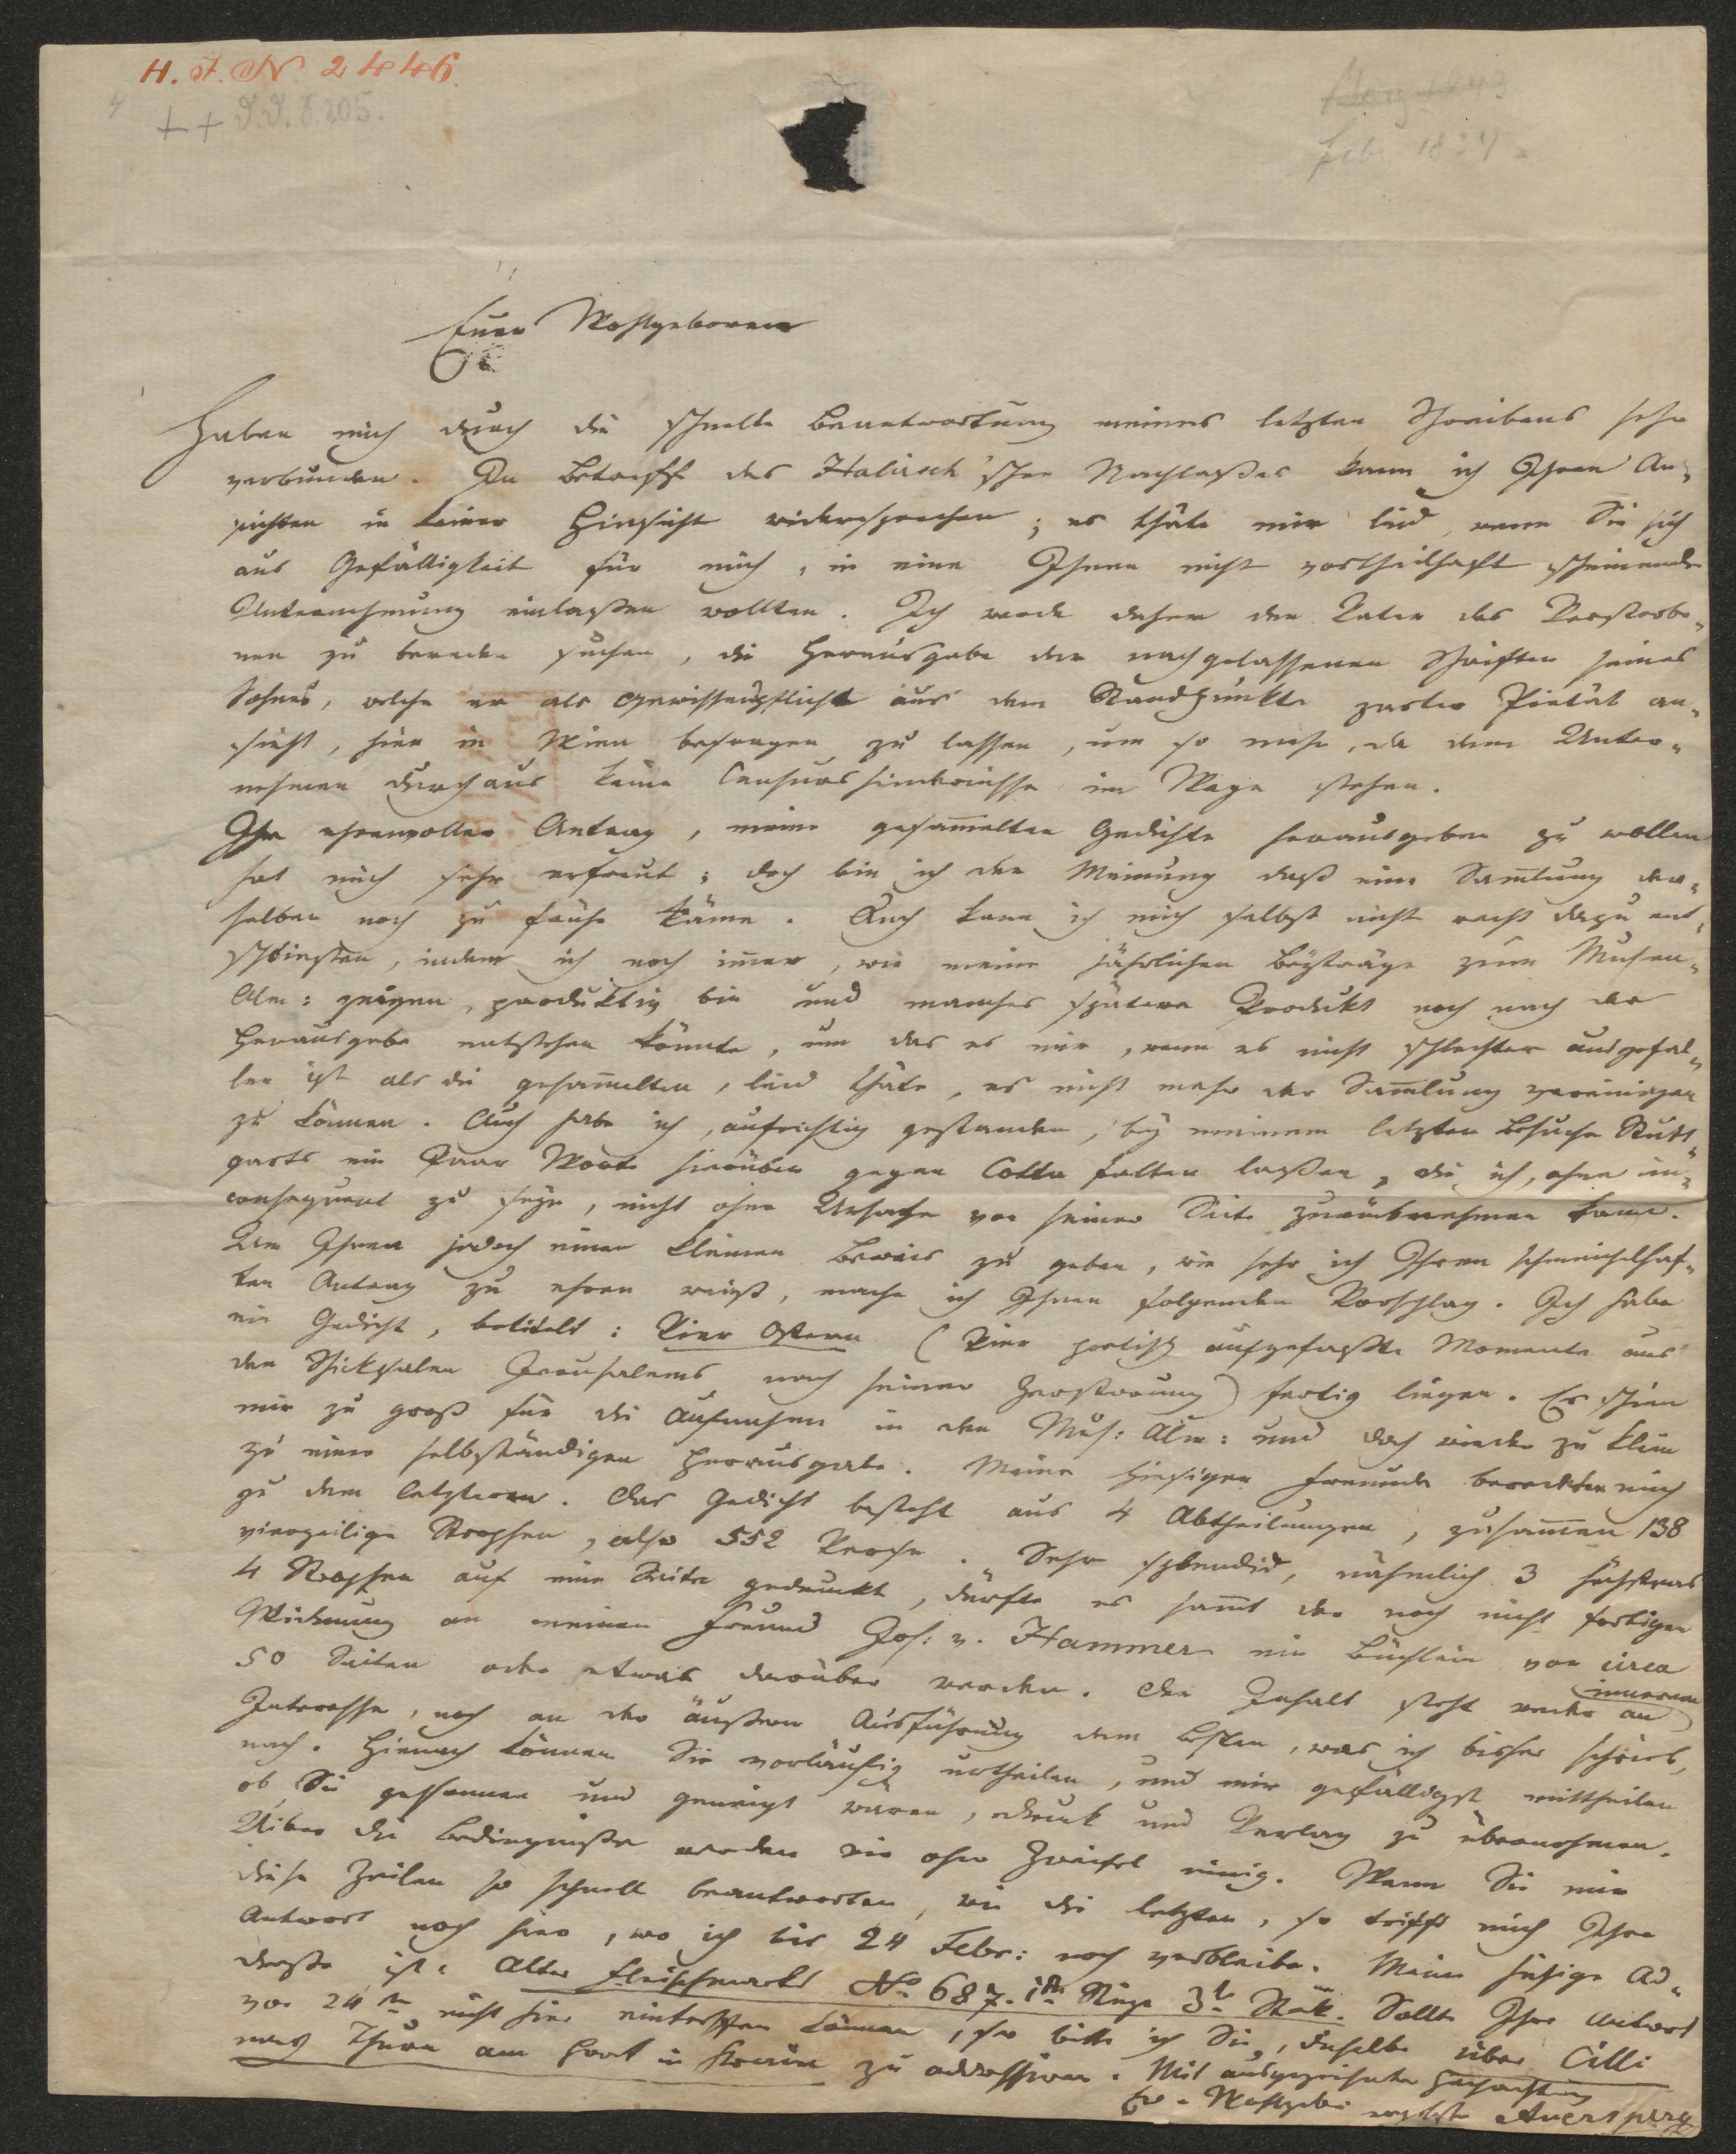 H. I. N. 2446.
++ J.J. 8205.
März 1843
Feb. 1834
Euer Wohlgeboren
Haben mich durch die schnelle Beantwortung meines letzten Schreibens sehr
verbunden. In Betreff des Halirsch'schen Nachlaßes kann ich Ihren An¬
sichten in keiner Hinsicht widersprechen; es thäte mir leid, wenn Sie sich
aus Gefälligkeit für mich, in eine Ihnen nicht vortheilhaft scheinende
Unternehmung einlaßen wollten. Ich werde daher den Vater des Verstorbe¬
nen zu bereden suchen, die Herausgabe der nachgelassenen Schriften seines
Sohnes, welche er als Gewissenspflicht aus dem Standpunkte zarter Pietät an¬
sieht, hier in Wien besorgen zu lassen, um so mehr, da dem Unter¬
nehmen durchaus keine Censurshindernisse im Wege stehen.
Ihr ehrenvoller Antrag, meine gesam̅elten Gedichte herausgeben zu wollen
hat mich sehr erfreut; doch bin ich der Meinung daß eine Sam̅lung der¬
selben noch zu frühe käme. Auch kann ich mich selbst nicht recht dazu ent¬
schließen, indem ich noch im̅er, wie meine jährlichen Beyträge zum Musen¬
Alm: zeigen, produktiv bin und manches spätere Produkt noch nach der
Herausgabe entstehen könnte, um das es mir, wenn es nicht schlechter ausgefal¬
len ist als die gesam̅elten, leid thäte, es nicht mehr der Sam̅lung vereinigen
zu können. Auch habe ich, aufrichtig gestanden, bey meinem letzten Besuche Stutt¬
garts ein Paar Worte hierüber gegen Cotta fallen laßen, die ich, ohne in¬
consequent zu seyn, nicht ohne Ursache von seiner Seite zurücknehmen kann.
Um Ihnen jedoch einen kleinen Beweis zu geben, wie sehr ich Ihren schmeichelhaf¬
ten Antrag zu ehren weiß, mache ich Ihnen folgenden Vorschlag. Ich habe
ein Gedicht, betitelt: Vier Ostern (Vier poetisch aufgefaßte Momente aus
den Schicksalen Jerusalems nach seiner Zerstörung) fertig liegen. Es schien
mir zu groß für die Aufnahme in den Mus: Alm: und doch wieder zu klein
zu einer selbständigen Herausgabe. Meine hiesigen Freunde beredeten mich
zu dem letzteren. Das Gedicht besteht aus 4 Abtheilungen, zusam̅en 138
vierzeilige Strophen, also 552 Verse. Sehr splendid, nähmlich 3 höchstens
4 Strophen auf eine Seite gedruckt, dürfte es sam̅t der noch nicht fertigen
Widmung an meinen Freund Jos: v. Hammer ein Büchlein von circa
50 Seiten oder etwas darüber werden. Der Inhalt steht weder an innerem
Interesse, noch an der äußern Ausführung dem Besten, was ich bisher schrieb,
nach. Hienach können Sie vorläufig urtheilen, und mir gefälligst mittheilen
ob Sie gesonnen und geneigt wären, Druck und Verlag zu übernehmen.
Über die Bedingniße werden wir ohne Zweifel einig. Wenn Sie mir
diese Zeilen so schnell beantworten, wie die letzten, so trifft mich Ihre
Antwort noch hier, wo ich bis 24 Febr: noch verbleibe. Meine hiesige Ad¬
dresse ist: Alter Fleischmarkt No 687. 1te Stiege 3ter Stok. Sollte Ihre Antwort
vor 24ten nicht hier eintreffen können, so bitte ich Sie, dieselbe über Cilli
nach Thurn am Hart in Krain zu addressiren. Mit ausgezeichneter Hochachtung
Ew. Wohlgeb. ergebster Auersperg